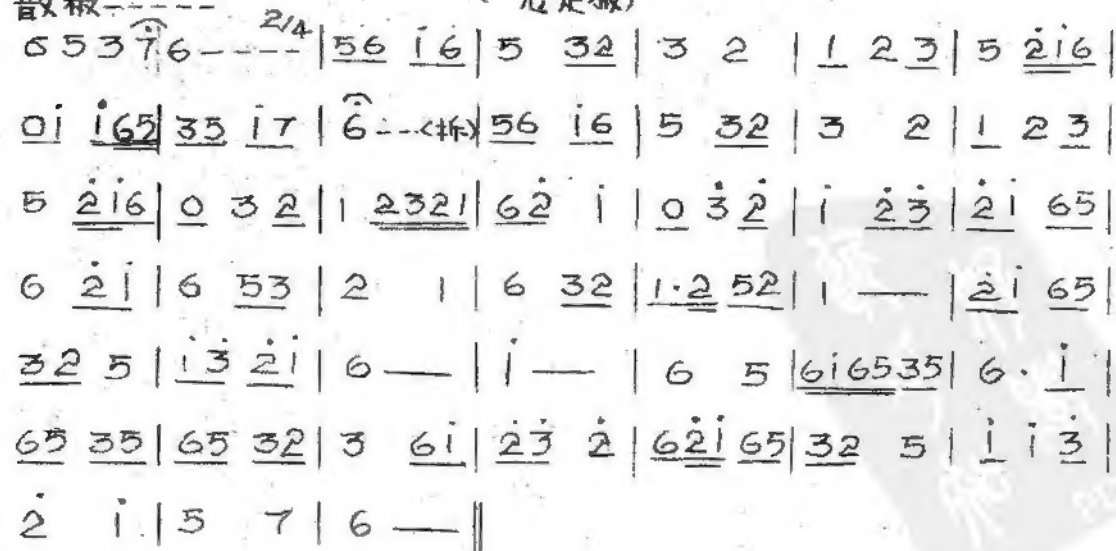 散板-----
6 5 3 7̇ 6---- 2/4 | 56 i̇6 | 5 32 | 3 2 | 1 2 3 | 5 2̇i̇6 |
0i̇ i̇65 | 35 i̇7 | 6̇---<拆> 56 i̇6 | 5 32 | 3 2 | 1 2 3 |
5 2̇i̇6 | 0 3 2 | 1 2321 | 62̇ i | 0 3̇ 2̇ | i̇ 2̇3̇ | 2̇i̇ 65 |
6 2̇i̇ | 6 53 | 2 1 | 6 32 | 1·2 52 | 1 — | 2̇i̇ 65 |
32 5 | i̇3̇ 2̇i̇ | 6 — | i̇ — | 6 5 | 6i̇6535 | 6· i̇ |
65 35 | 65 32 | 3 6i̇ | 2̇3̇ 2̇ | 62̇i̇ 65 | 32 5 | i̇ i̇ 3̇ |
2̇ i̇ | 5 7 | 6 — ‖